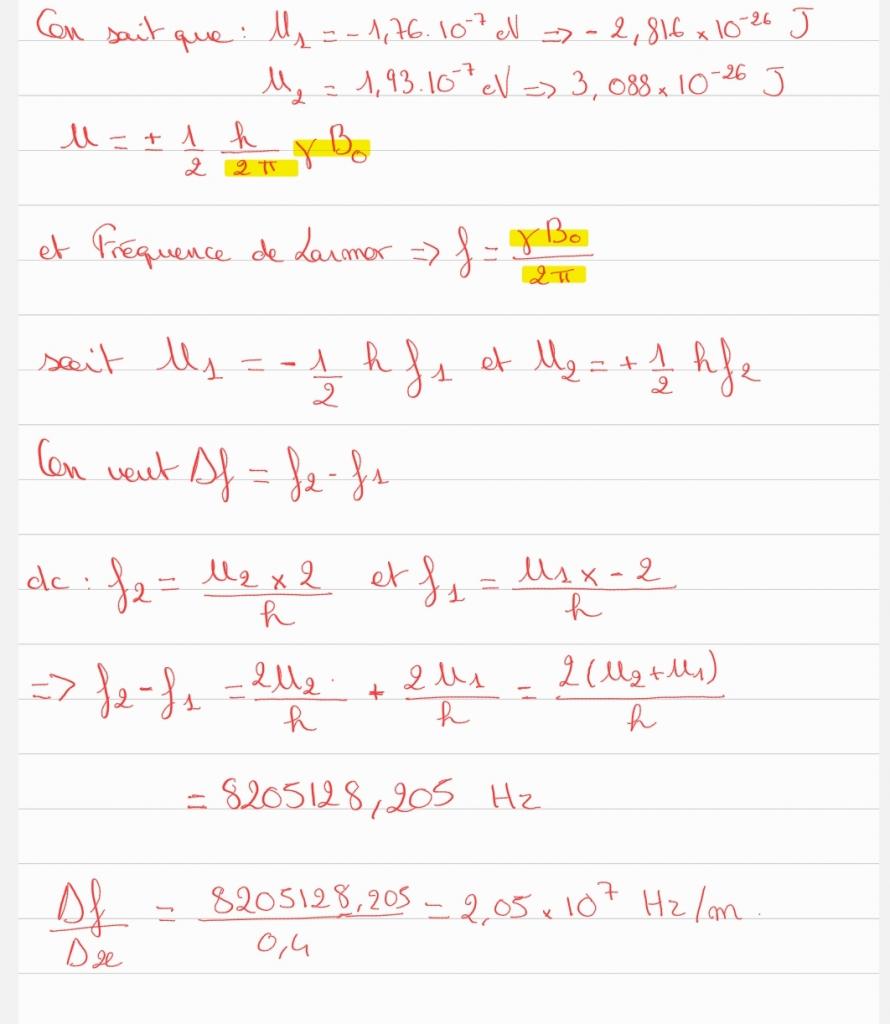 On sait que : U₁ = -1,76.10⁻⁷ eV => - 2,816 x 10⁻²⁶ J
U₂ = 1,93.10⁻⁷ eV => 3,088 x 10⁻²⁶ J
U = ± 1/2 h/2π γ B₀
et Fréquence de Larmor => f = γ B₀/2π
soit U₁ = - 1/2 h f₁ et U₂ = + 1/2 h f₂
On veut Δf = f₂ - f₁
dc : f₂ = U₂ x 2/h et f₁ = U₁ x - 2/h
=> f₂ - f₁ = 2U₂/h + 2U₁/h = 2(U₂+U₁)/h
= 8205128,205 Hz
Δf/Δx = 8205128,205/0,4 = 2,05 x 10⁷ Hz/m.